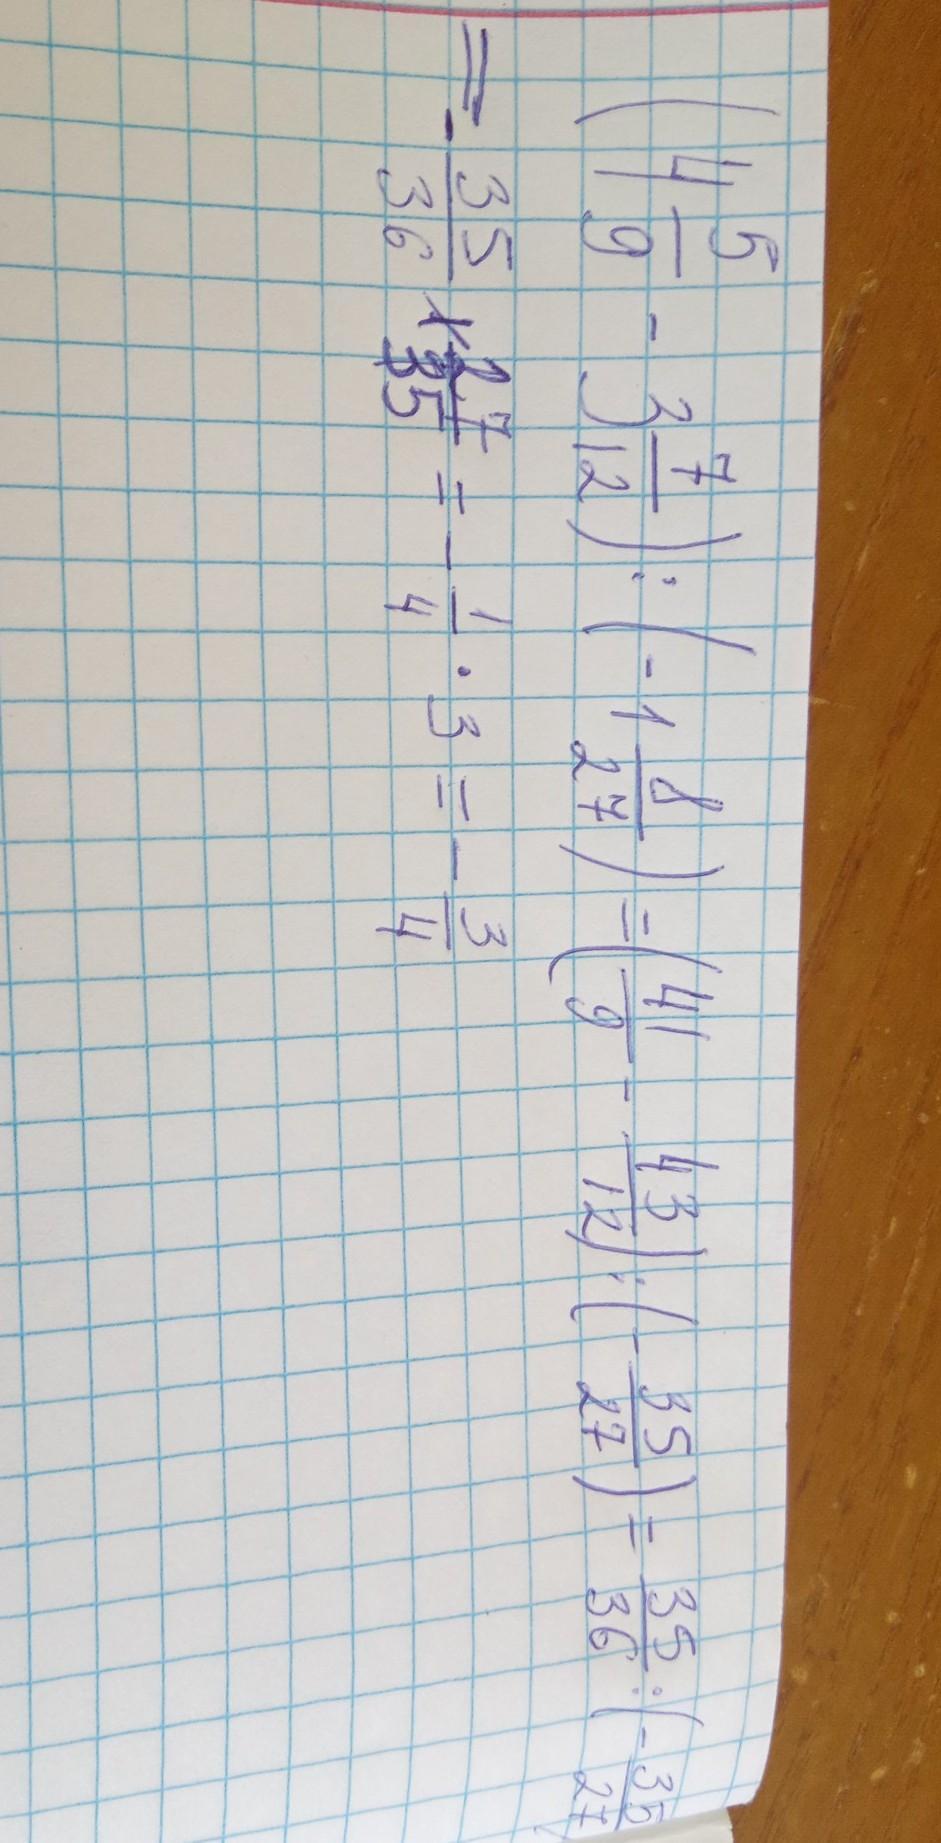 (4 5/9 - 3 7/12) : (-1 8/27) = (41/9 - 43/12) : (-35/27) = 35/36 : (-35/27
= - 35/36 · 27/35 = - 1/4 · 3 = - 3/4